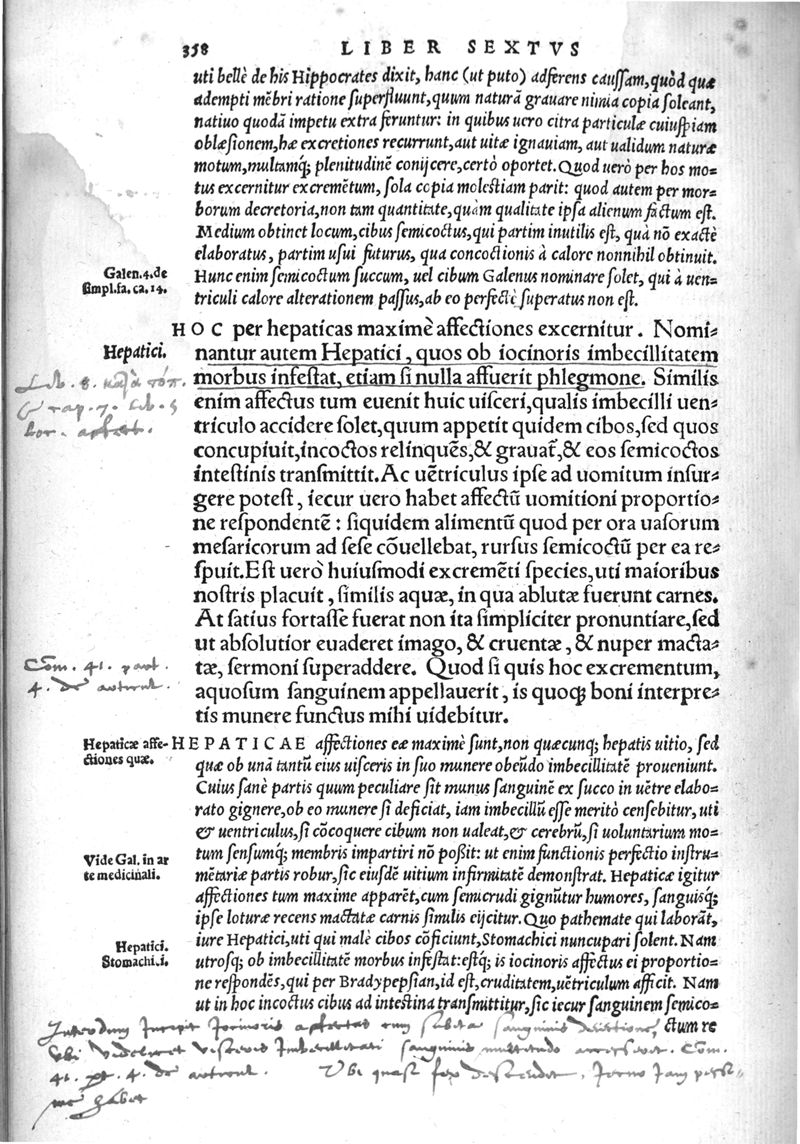 358 LIBER SEXTVS
uti bellè de his Hippocrates dixit, hanc (ut puto) adferens caussam, quòd quæ
adempti mẽbri ratione superfluunt, quum naturã grauare nimia copia soleant,
natiuo quodã impetu extra feruntur: in quibus uero citra particulæ cuiuspiam
oblæsionem, hæ excretiones recurrunt, aut uitæ ignauiam, aut ualidum naturæ
motum, multamq; plenitudinẽ conijcere, certò oportet. Quod uerò per hos mo-
tus excernitur excremẽtum, sola copia molestiam parit: quod autem per mor-
borum decretoria, non tam quantitate, quàm qualitate ipsa alienum factum est.
Medium obtinet locum, cibus semicoctus, qui partim inutilis est, quà nõ exactè
elaboratus, partim usui futurus, qua concoctionis à calore nonnihil obtinuit.
Galen. 4. de
simpl. fa. ca. 14.
Hunc enim semicoctum succum, uel cibum Galenus nominare solet, qui à uen-
triculi calore alterationem passus, ab eo perfectè superatus non est.
HOC per hepaticas maximè affectiones excernitur. Nomi-
Hepatici.
nantur autem Hepatici, quos ob iocinoris imbecillitatem
morbus infestat, etiam si nulla affuerit phlegmone. Similis
Lib. 8.
enim affectus tum euenit huic uisceri, qualis imbecilli uen-
triculo accidere solet, quum appetit quidem cibos, sed quos
concupiuit, incoctos relinquẽs, & grauat̃, & eos semicoctos
intestinis transmittit. Ac uẽtriculus ipse ad uomitum insur-
gere potest, iecur uero habet affectũ uomitioni proportio-
ne respondentẽ: siquidem alimentũ quod per ora uasorum
mesaricorum ad sese cõuellebat, rursus semicoctũ per ea re-
spuit. Est uerò huiusmodi excremẽti species, uti maioribus
nostris placuit, similis aquæ, in qua ablutæ fuerunt carnes.
At satius fortasse fuerat non ita simpliciter pronuntiare, sed
ut absolutior euaderet imago, & cruentæ, & nuper macta-
Com. 41.
4. de
tæ, sermoni superaddere. Quod si quis hoc excrementum,
aquosum sanguinem appellauerit, is quoq; boni interpre-
tis munere functus mihi uidebitur.
Hepaticæ affe-
ctiones quæ.
HEPATICAE affectiones eæ maximè sunt, non quæcunq; hepatis uitio, sed
quæ ob unã tantũ eius uisceris in suo munere obeũdo imbecillitatẽ proueniunt.
Cuius sanè partis quum peculiare sit munus sanguinẽ ex succo in uẽtre elabo-
rato gignere, ob eo munere si deficiat, iam imbecillũ esse meritò censebitur, uti
& uentriculus, si cõcoquere cibum non ualeat, & cerebrũ, si uoluntarium mo-
Vide Gal. in ar
te medicinali.
tum sensumq; membris impartiri nõ possit: ut enim functionis perfectio instru-
mẽtariæ partis robur, sic eiusdẽ uitium infirmitatẽ demonstrat. Hepaticæ igitur
affectiones tum maxime apparẽt, cum semicrudi gignũtur humores, sanguisq;
ipse loturæ recens mactatæ carnis similis eijcitur. Quo pathemate qui laborãt,
Hepatici.
Stomachi.i.
iure Hepatici, uti qui malè cibos cõficiunt, Stomachici nuncupari solent. Nam
utrosq; ob imbecillitatẽ morbus infestat: estq; is iocinoris affectus ei proportio-
ne respondẽs, qui per Bradypepsian, id est, cruditatem, uẽtriculum afficit. Nam
ut in hoc incoctus cibus ad intestina transmittitur, sic iecur sanguinem semico-
ctum re
Interdum Incipit Iocinoris affectus cum sanguinis
Vbi visceris Imbecillitati sanguinis Com.
41. 4. de Vbi quasi fex descendet, Iecur Iam
habet